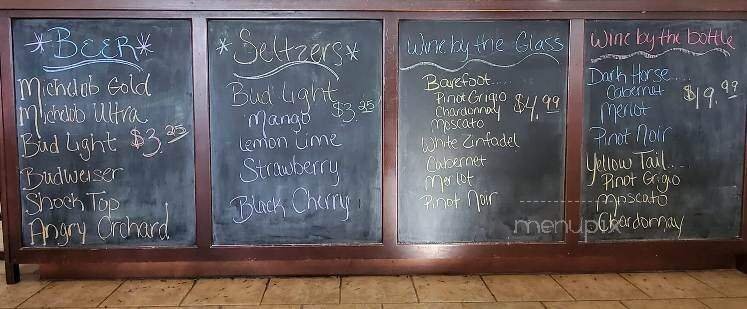 *Beer*
Michelob Gold
Michelob Ultra
Bud Light $3.25
Budweiser
Shock Top
Angry Orchard
*Seltzers*
Bud Light
Mango $3.25
Lemon Lime
Strawberry
Black Cherry
Wine by the Glass
Barefoot....
Pinot Grigio
Chardonnay $4.99
Moscato
White Zinfadel
Cabernet
Merlot
Pinot Noir
Wine by the bottle
Dark Horse....
Cabernet $19.99
Merlot
Pinot Noir
Yellow Tail...
Pinot Grigio
Moscato
Chardonnay
menupix